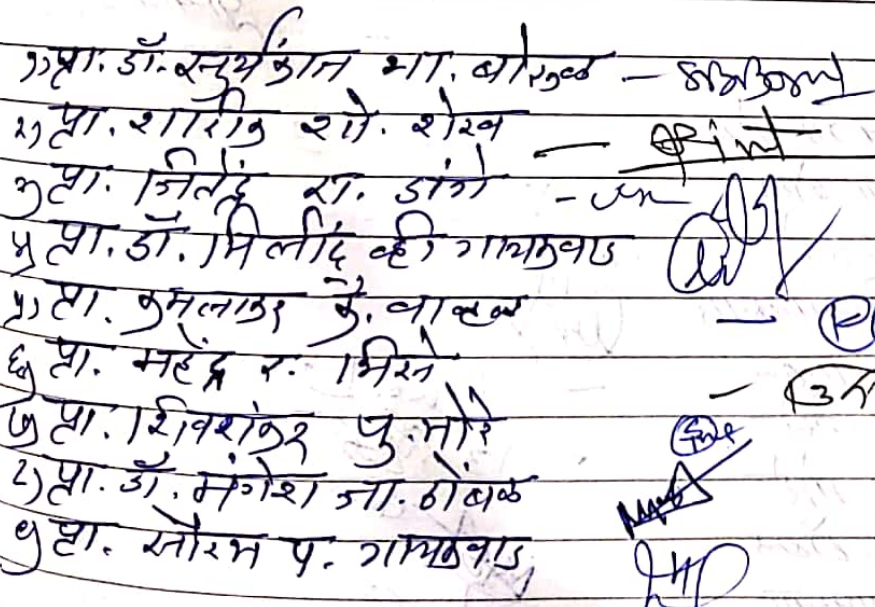 १) प्रा. डॉ. सुर्यकांत भा. बोरुळ -
२) प्रा. शारीक शे. शेख -
३) प्रा. जितेंद्र रा. डांगे -
४) प्रा. डॉ. मिलींद व्ही गायकवाड
५) प्रा. कमलाकर के. वाव्हळ -
६) प्रा. महेंद्र र. भिसे -
७) प्रा. शिवशंकर पु. मोरे
८) प्रा. डॉ. मंगेश जा. ठोंबळ
९) प्रा. सौरभ प. गायकवाड